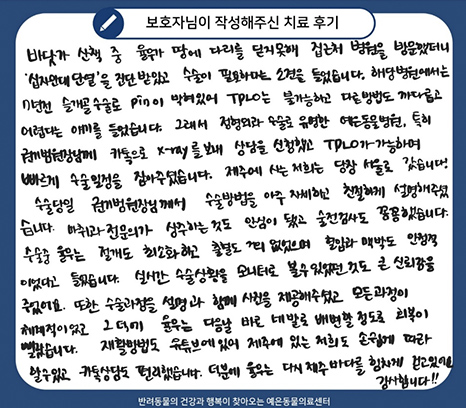 보호자님이 작성해주신 치료 후기
바닷가 산책 중 율무가 땅에 다리를 딛지못해 집근처 병원을 방문했더니
'십자인대 단열'을 진단 받았고 수술이 필요하다는 소견을 들었습니다. 해당병원에서는
7년전 슬개골수술로 Pin이 박혀있어 TPLO는 불가능하고 다른방법도 까다롭고
어렵다는 얘기를 들었습니다. 그래서 정형외과 수술로 유명한 예은동물병원, 특히
권기범원장님께 카톡으로 x-ray를 보내 상담을 신청했고 TPLO가 가능하며
빠르게 수술일정을 잡아주셨습니다. 제주에 사는 저희는 당장 서울로 갔습니다!
수술당일 권기범원장님께서 수술방법을 아주 자세하고 친절하게 설명해주셨
습니다. 마취과 전문의가 상주하는것도 안심이 됐고 술전검사도 꼼꼼했습니다.
수술중 율무는 절개도 최소화하고 출혈도 거의 없었으며 혈압과 맥박도 안정적
이었다고 들었습니다. 실시간 수술상황을 모니터로 볼수 있었던 것도 큰 신뢰감을
주었어요. 또한 수술과정을 설명과 함께 사진을 제공해주셨고 모든과정이
체계적이었고 그 덕에 율무는 다음날 바로 네발로 배변할 정도로 회복이
빨랐습니다. 재활방법도 유튜브에 있어 제주에 있는 저희도 손쉽게 따라
할수있고 카톡상담도 편리했습니다. 덕분에 율무는 다시 제주바다를 힘차게 걷고있어요
감사합니다!!
반려동물의 건강과 행복이 찾아오는 예은동물의료센터